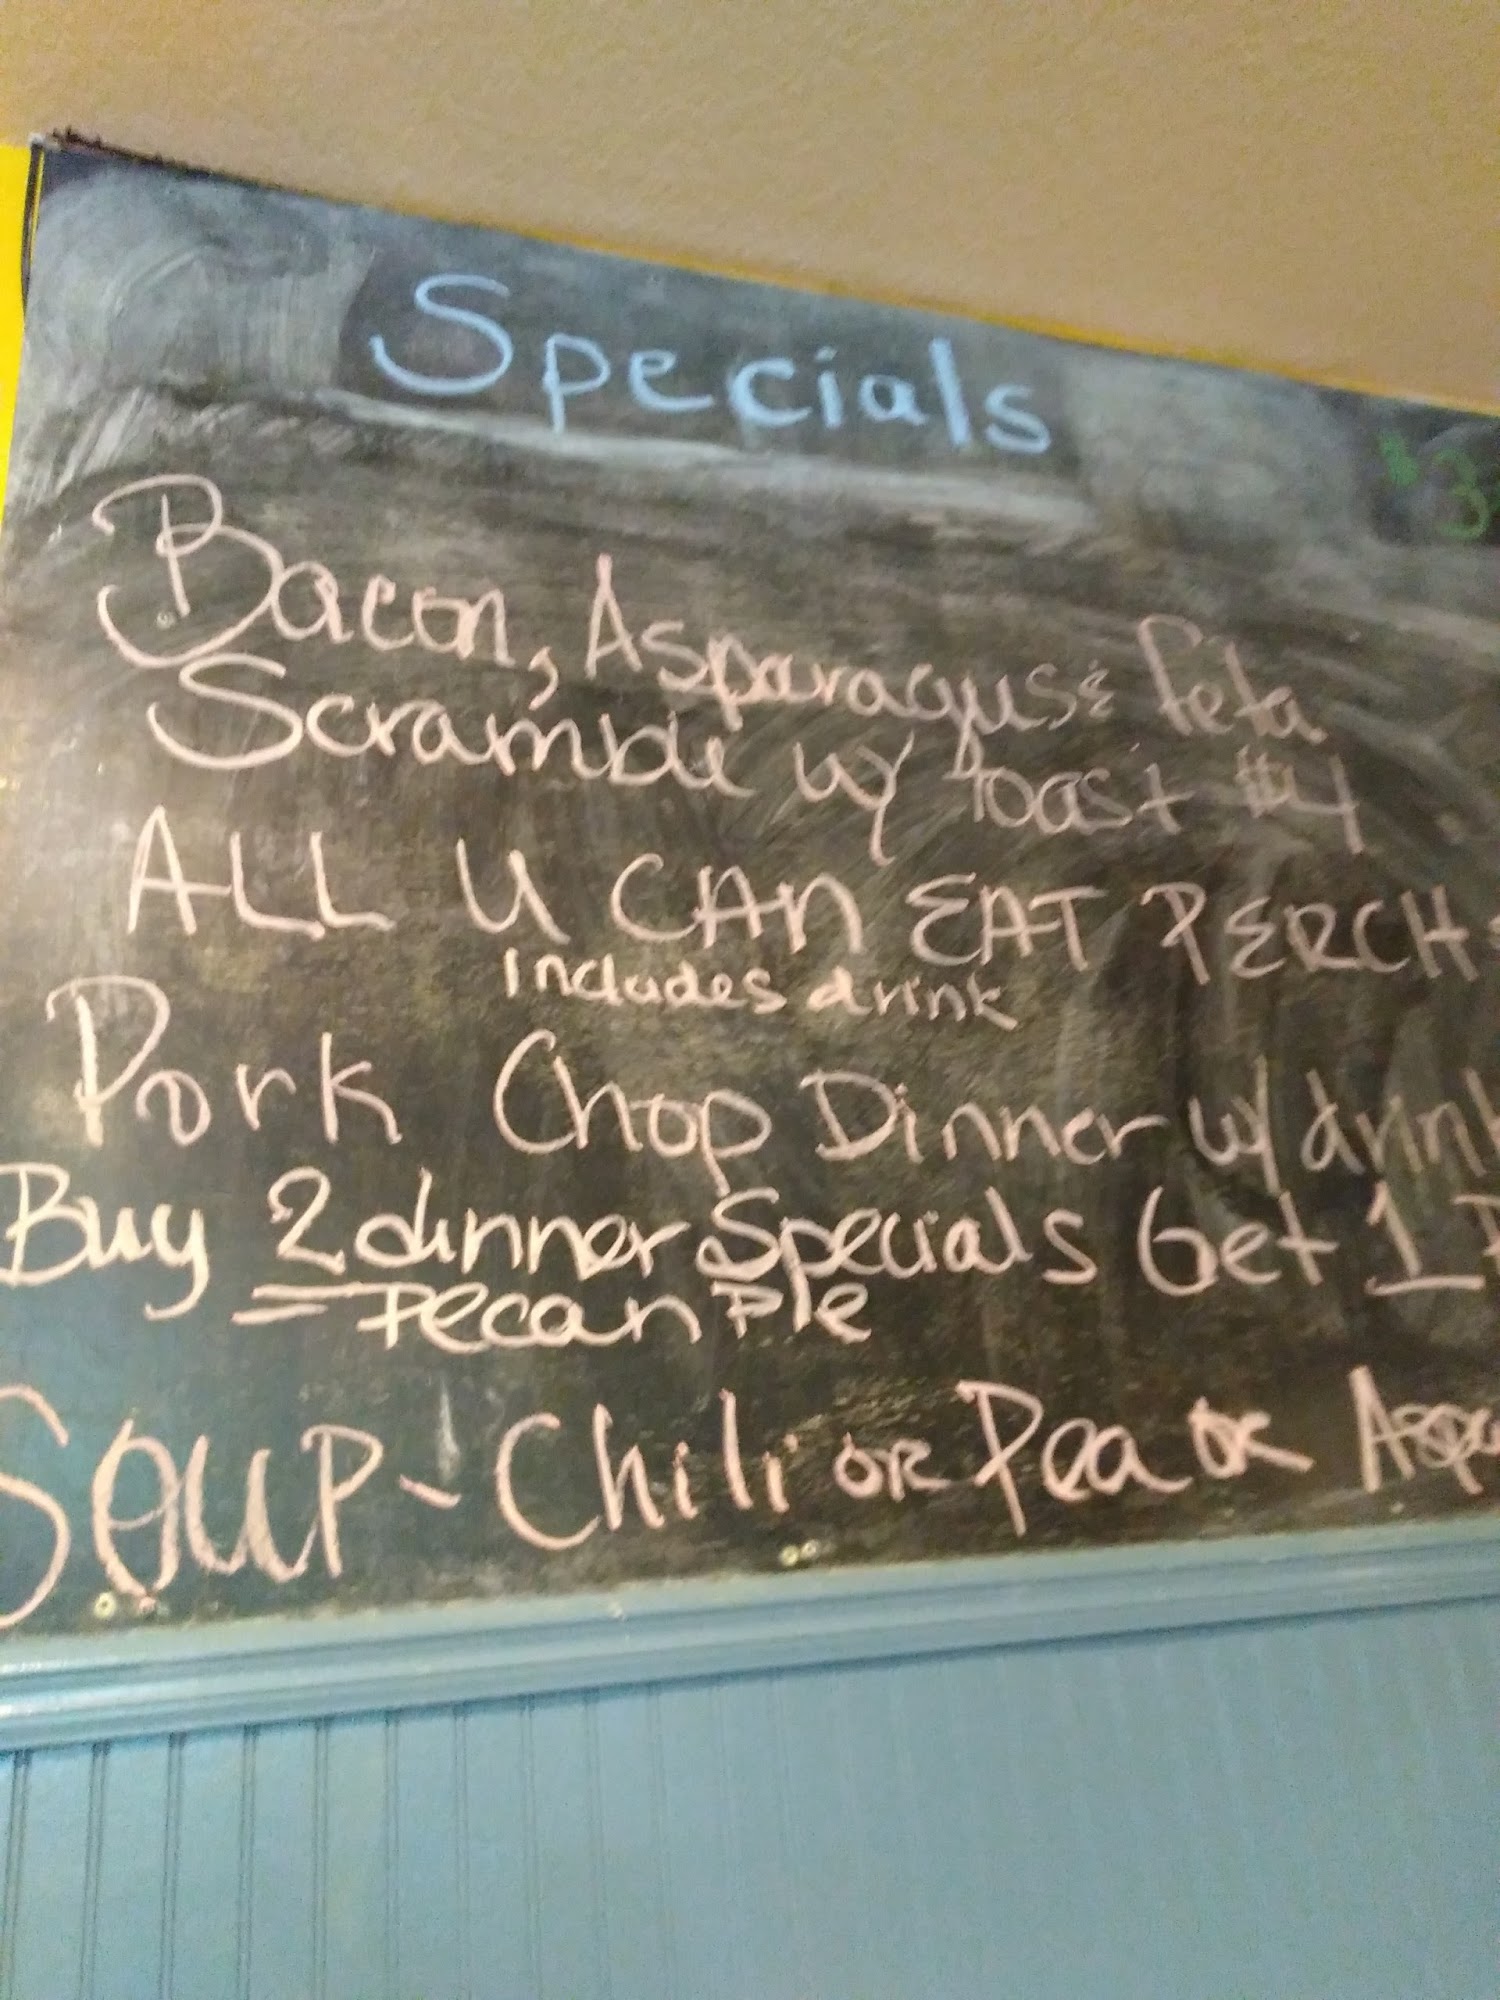 Specials
$3
Bacon, Asparagus & Feta
Scramble w/ Toast
ALL U CAN EAT PERCH
includes drink
Pork Chop Dinner w/ drink
Buy 2 dinner Specials Get 1
Pecan Pie
SOUP - Chili OR Pea OR